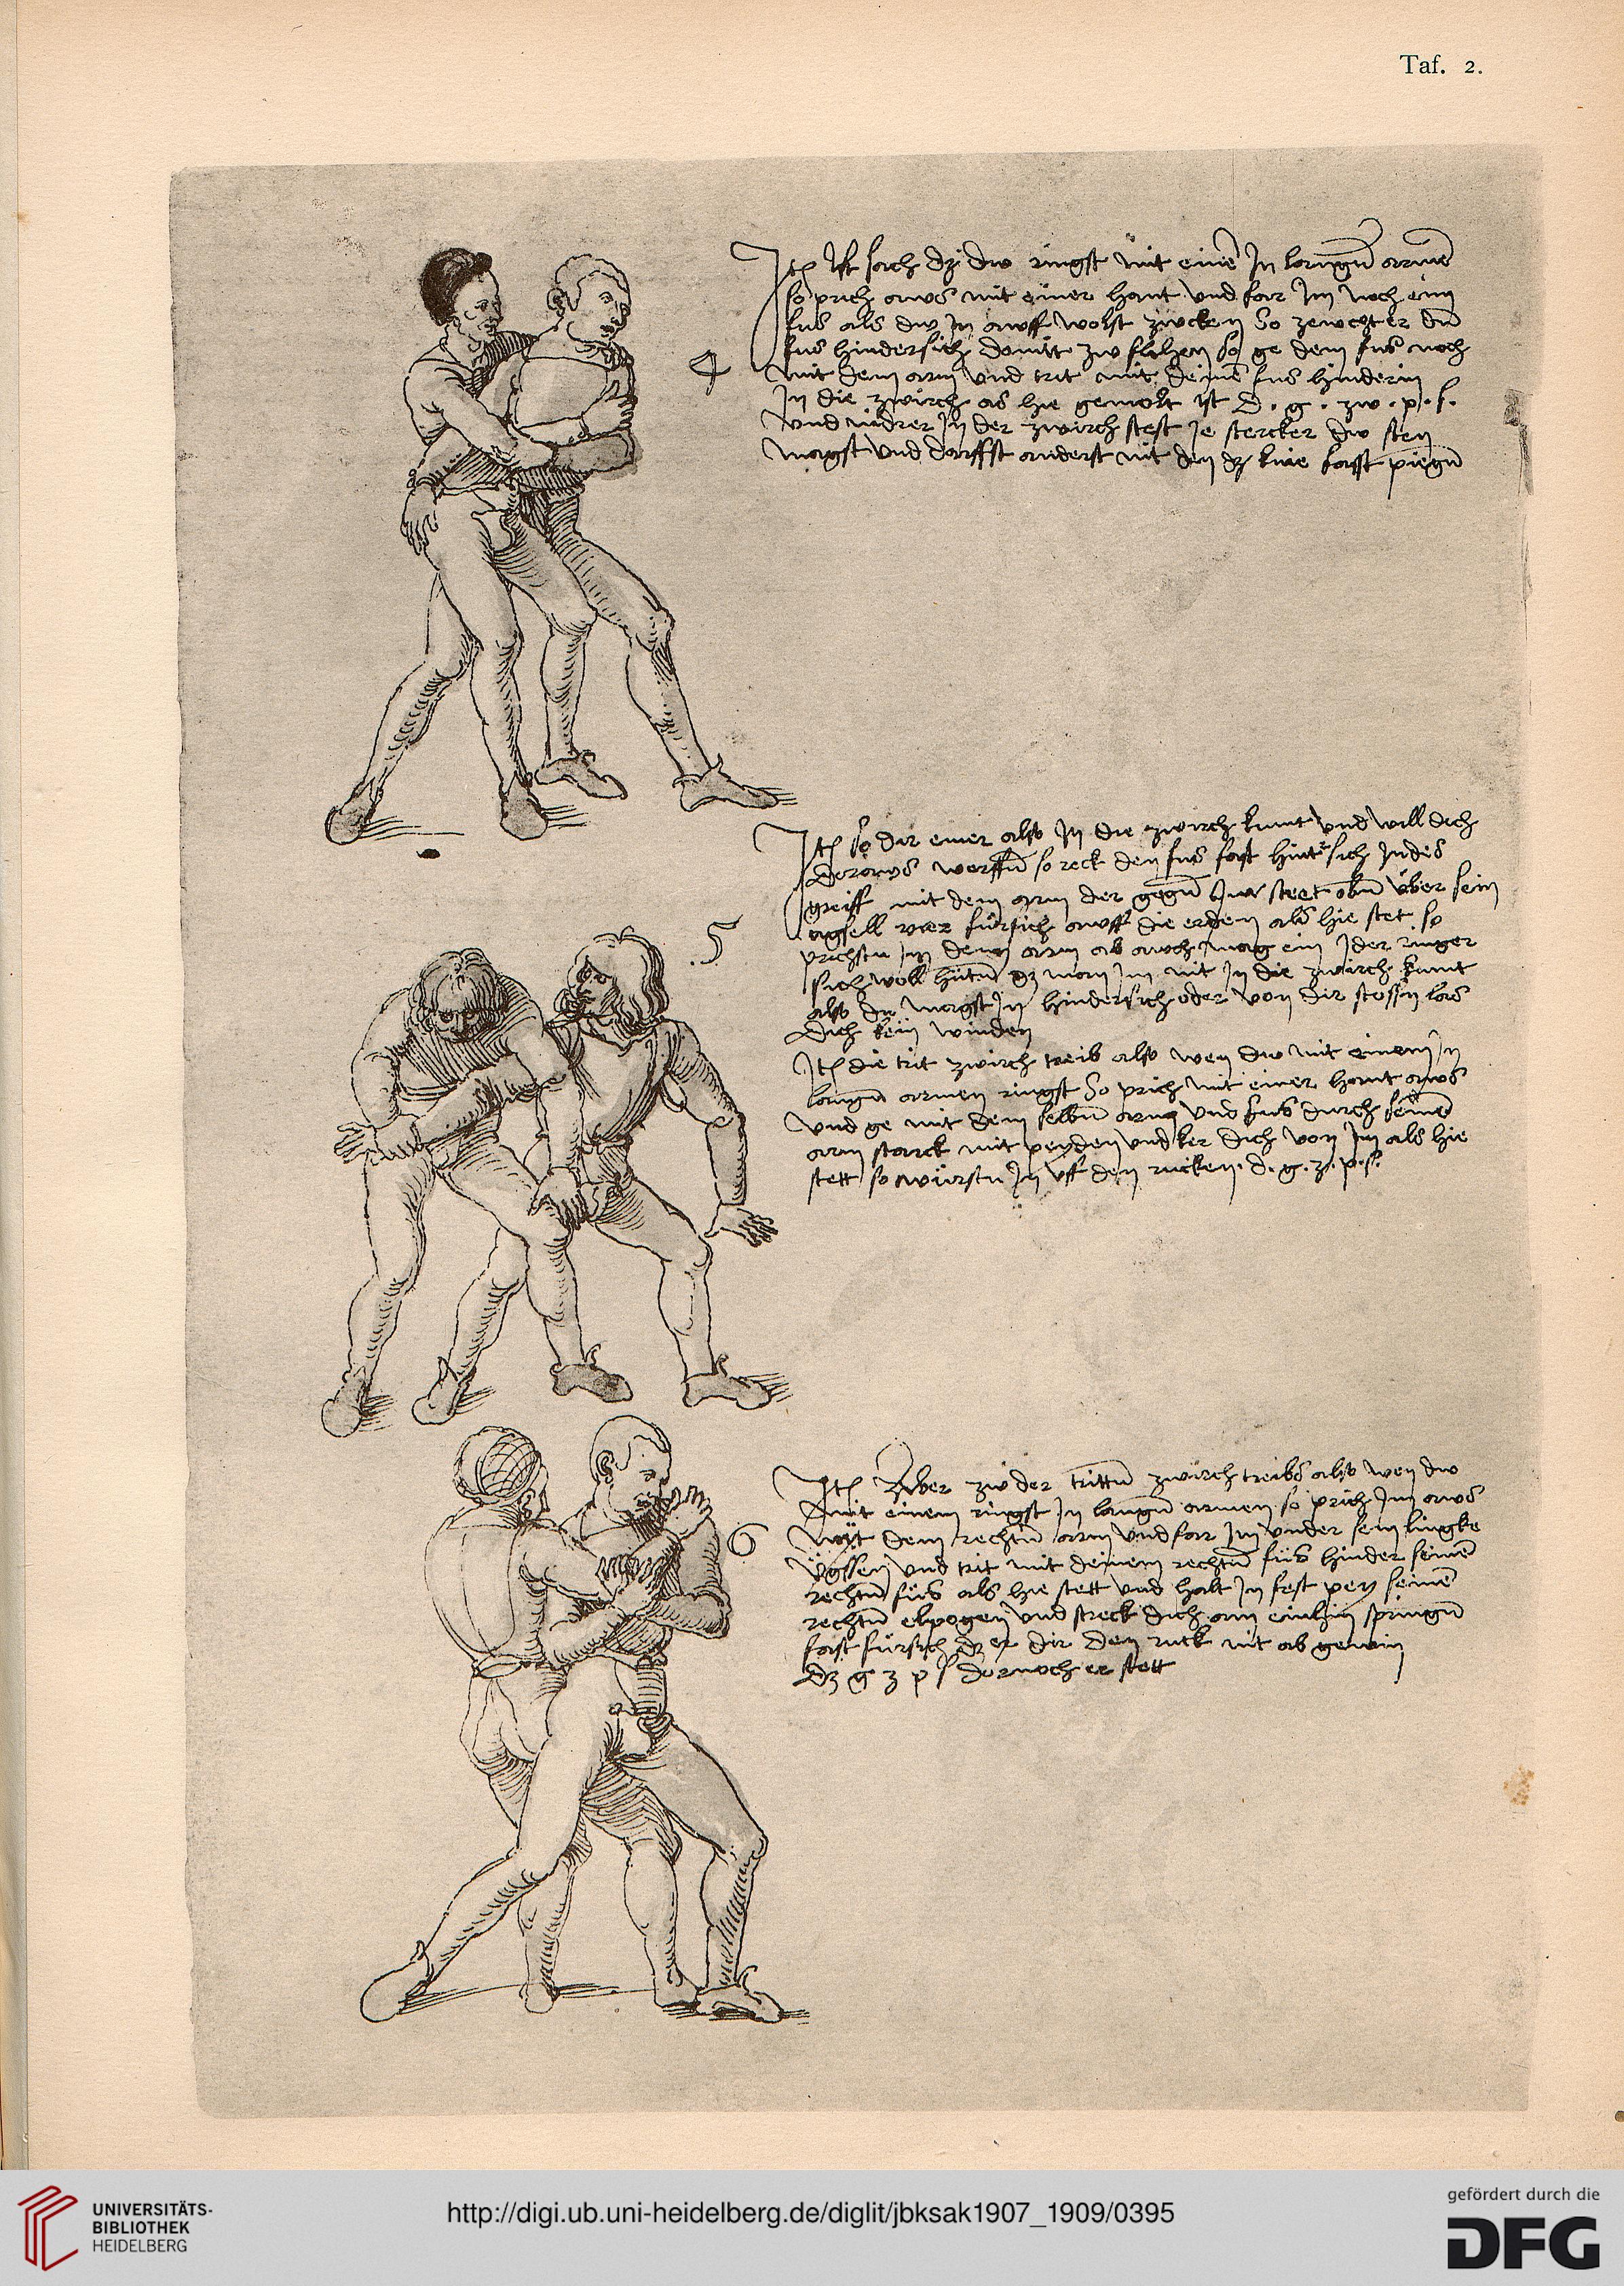 Taf. 2.
Itē Ist sach dz dw ringst mit einē In langn̄ armē
so prich aws mit einer hant vnd far Im noch eim
fus als dw In awff wolst zwcken So zewcht er dn̄
4
fus hindersich domit zw flihen so ge dem fus noch
mit dem arm vnd trit mit deinē fus hinderin
In die zwirch as hie gemolt ist D. g. zw. p. s.
vnd nidrer In der zwirch stest Je stercker dw sten
magst vnd darffst anderst nit den dz knie fast piegn̄
Itē so dir einer also In die zwirch kumt vnd will dich
Doraws werffn̄ so reck den fus fast hintersich Indes
greiff mit dem arm der gegn̄ Im steet obn̄ über sein
agsell vnd fürsich awff die erden als hie stet so
5
prichstu Im denn arm ab awch mag ein Jder ringer
sich woll hütn̄ dz man Im nit In die zwirch kumt
also dw magst In hindersich oder von dir stossn̄ las
Dich kein winden
Itē die trit zwirch treib also wen dw mit einem In
langn̄ armen ringst So prich mit einer hant aws
vnd ge mit dem selbn̄ arm vnd fus durch seinē
arm starck mit peyden vnd ker dich von Im als hie
stett so würfstu In vff den rucken. d. g. z. p. s.
Itē Aber zw der trittn̄ zwirch treibs also wen dw
mit einem ringst In langn̄ armen so prich Im aws
6
mit dem rechtn̄ arm vnd far Im vnder sein lingke
vgssen vnd trit mit deinem rechtn̄ füs hinder seinē
rechtn̄ füs als hie stett vnd halt In fest pey seinē
rechtn̄ elpogen vnd streck dich am einhin springn̄
fast fürsich dz er dir den ruck nit ab gewin
Dz g z p s dornoch er stett
UNIVERSITÄTS-
BIBLIOTHEK
HEIDELBERG
http://digi.ub.uni-heidelberg.de/diglit/jbksak1907_1909/0395
gefördert durch die
DFG